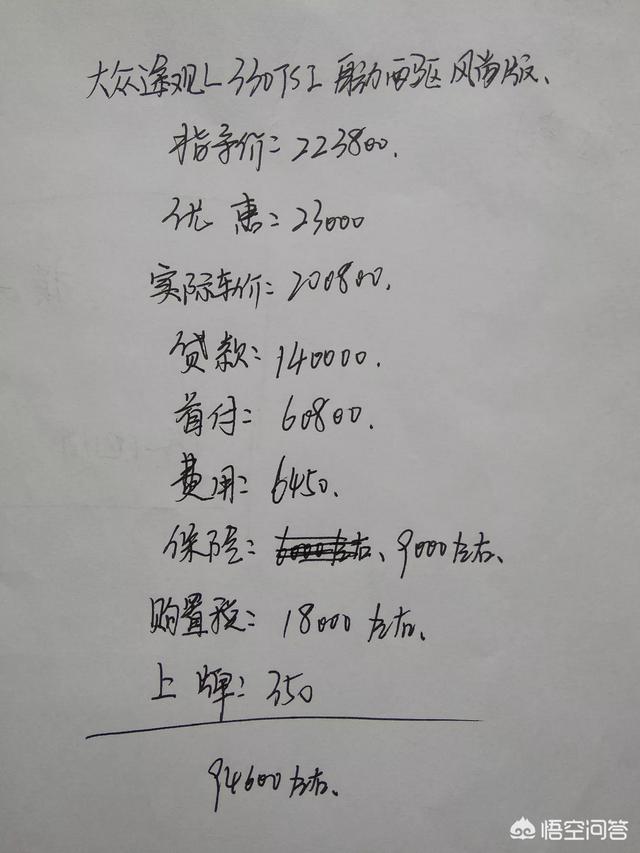 大众途观L 330TSI 自动两驱风尚版、
指导价: 223800.
优惠: 23000
实际车价: 200800.
贷款: 140000.
首付: 60800.
费用: 6450.
保险: 6000左右、9000左右、
购置税: 18000左右、
上牌: 350
94600左右、
悟空问答